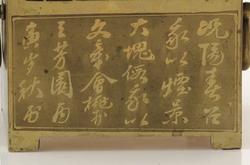 況陽春召
我以煙景
大塊假我以
文章會桃李
之芳園
秋